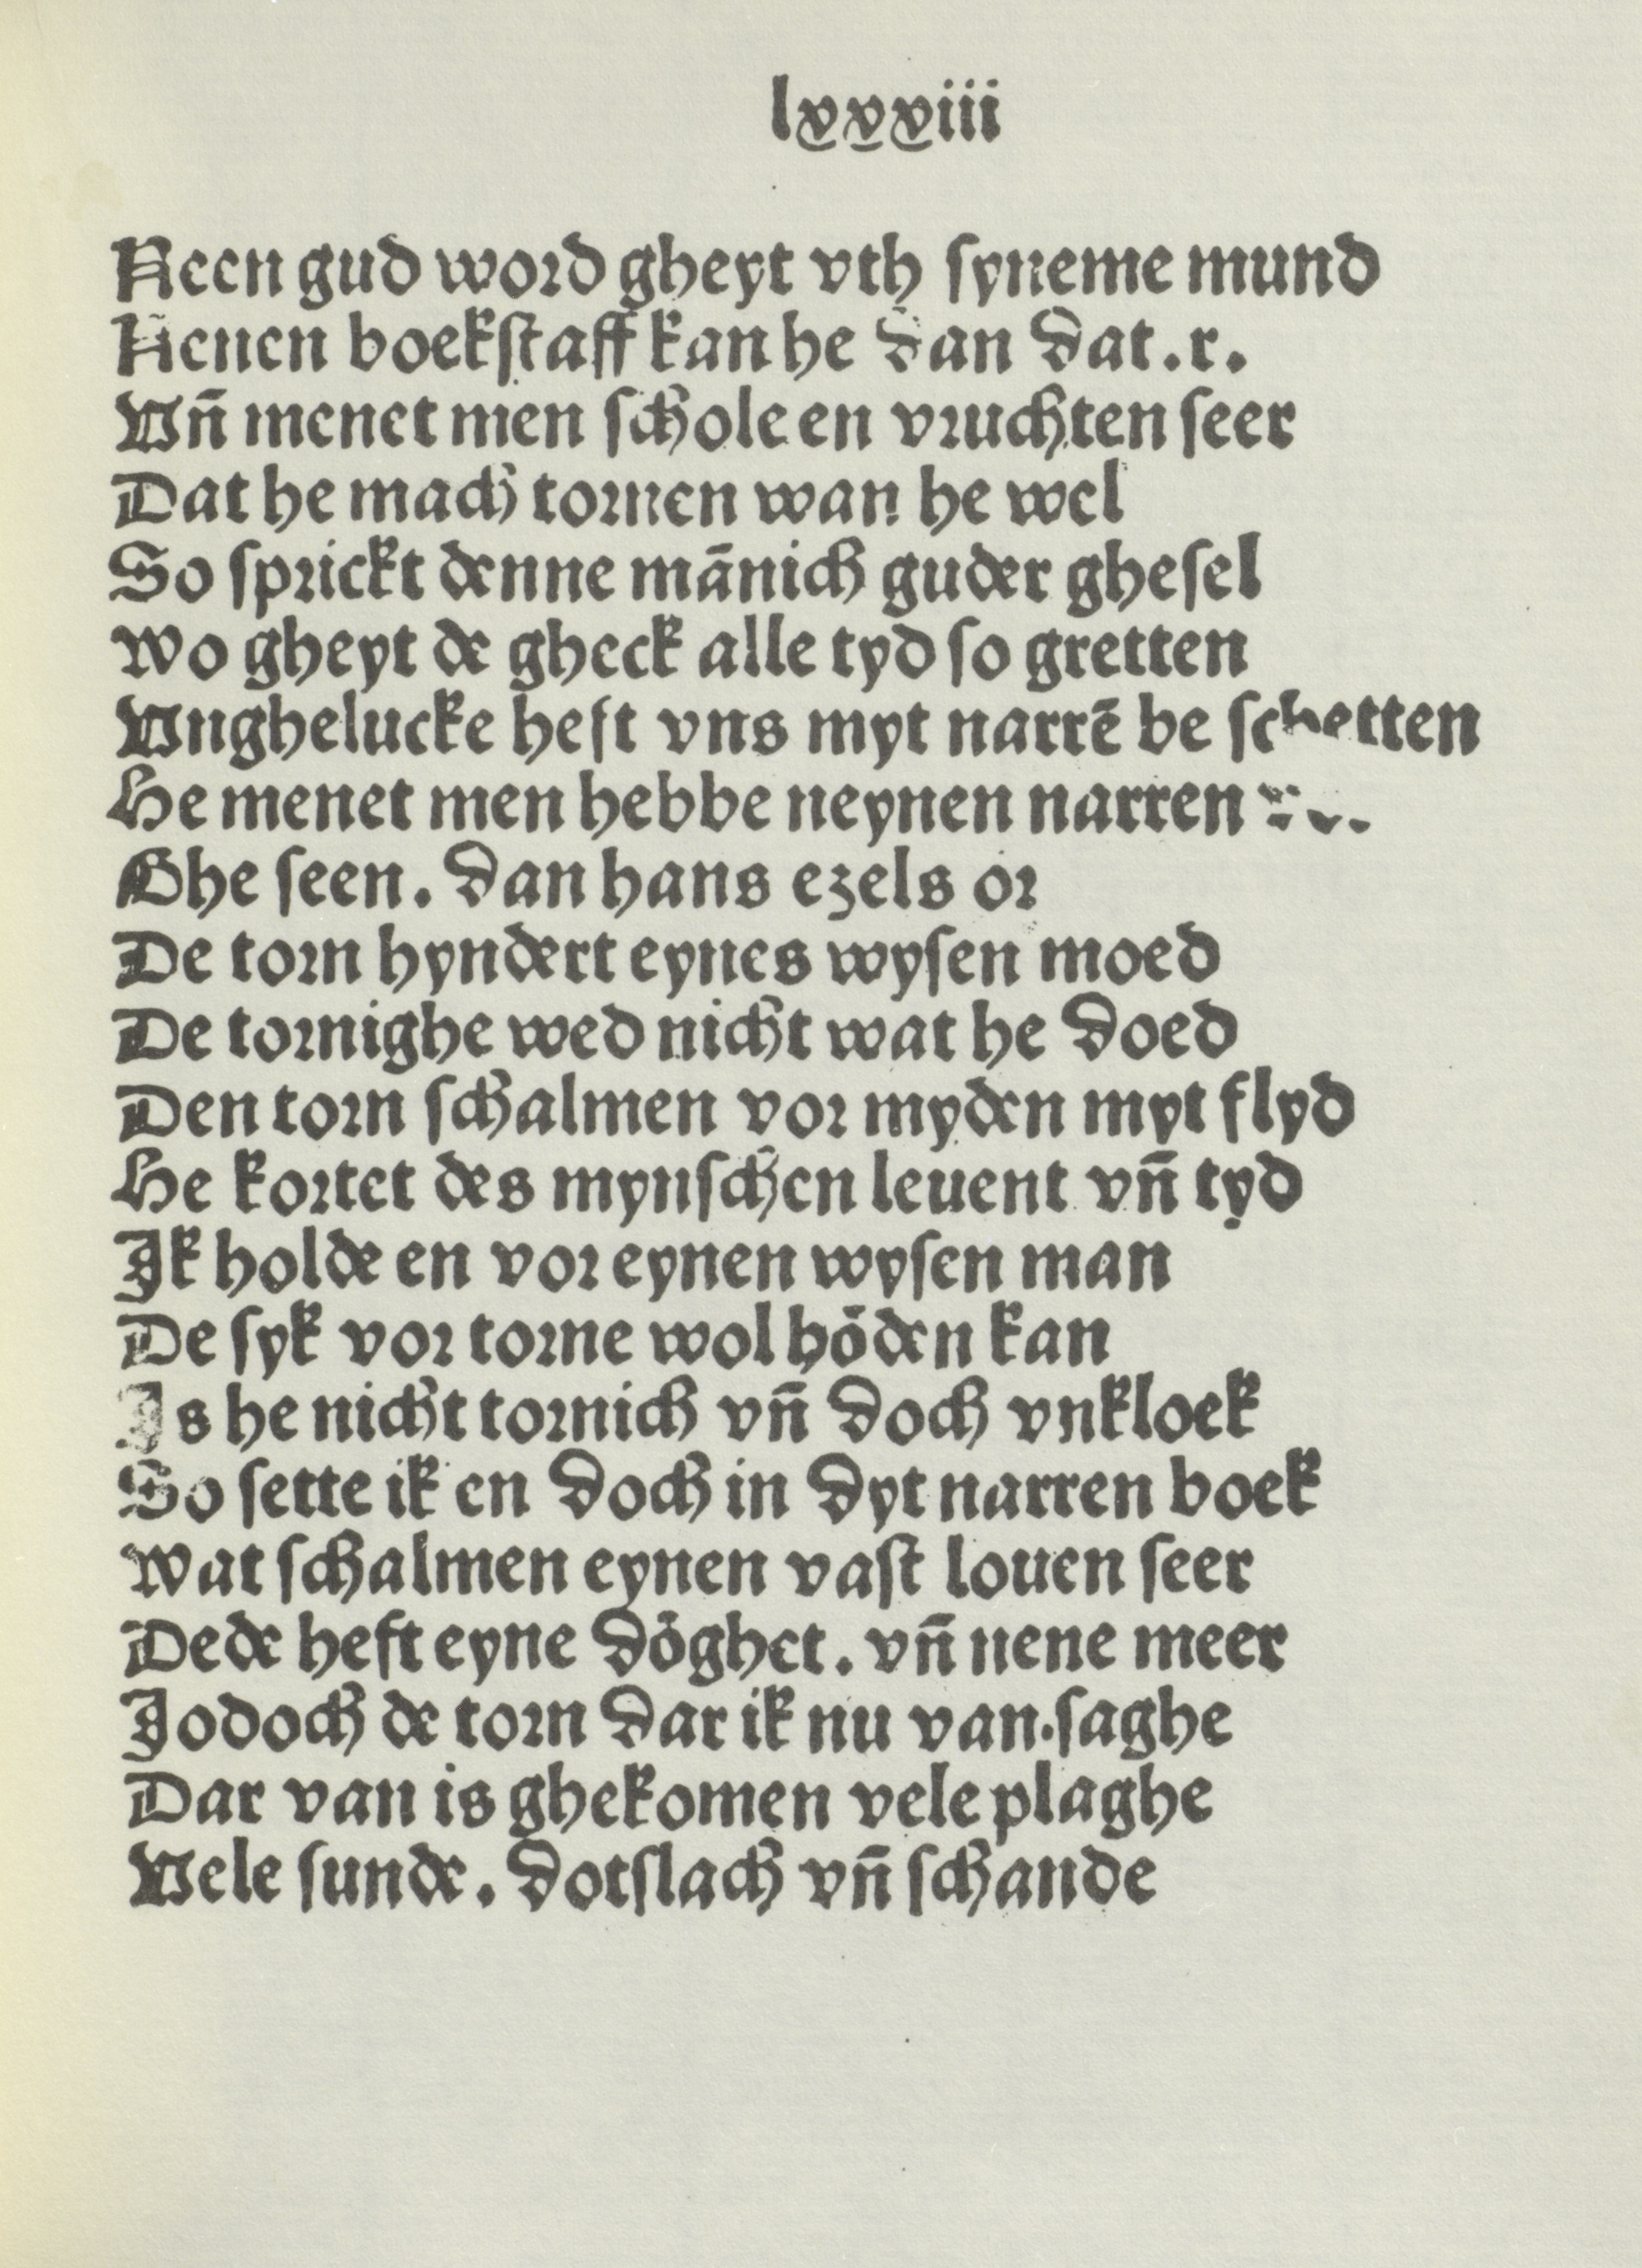 lxxxiii
Neen gud word gheyt vth syneme mund
Nenen boekstaff kan he dan dat .r.
Vn̄ menet men schole en vruchten seer
Dat he mach tornen wan he wel
So sprickt denne mānich guder ghesel
Wo gheyt de gheck alle tyd so gretten
Vnghelucke heft vns myt narrē be schetten
He menet men hebbe neynen narren
Ghe seen. dan hans ezels or
De torn hyndert eynes wysen moed
De tornighe wed nicht wat he doed
Den torn schalmen vor myden myt flyd
He kortet des mynschen leuent vn̄ tyd
Ik holde en vor eynen wysen man
De syk vor torne wol hoͤden kan
Is he nicht tornich vn̄ doch vnkloek
So sette ik en doch in dyt narren boek
Wat schalmen eynen vast louen seer
Dede heft eyne doͤghet. vn̄ nene meer
Jodoch de torn dar ik nu van.saghe
Dar van is ghekomen vele plaghe
Vele sunde. dotslach vn̄ schande